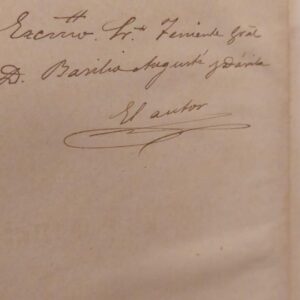 Excmo. Sr. Teniente Gral
D. Basilio Augustí y Dávila
El autor